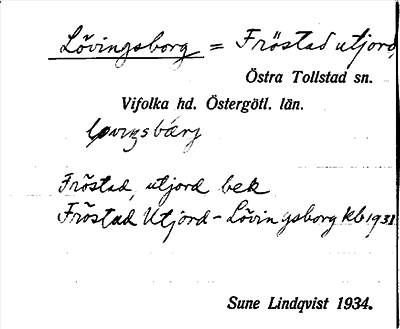 Lövingsborg = Fröstad utjord,
Östra Tollstad sn.
Vifolka hd. Östergötl. län.
Fröstad, utjord bek
Fröstad Utjord - Lövingsborg kb 1931
Sune Lindqvist 1934.